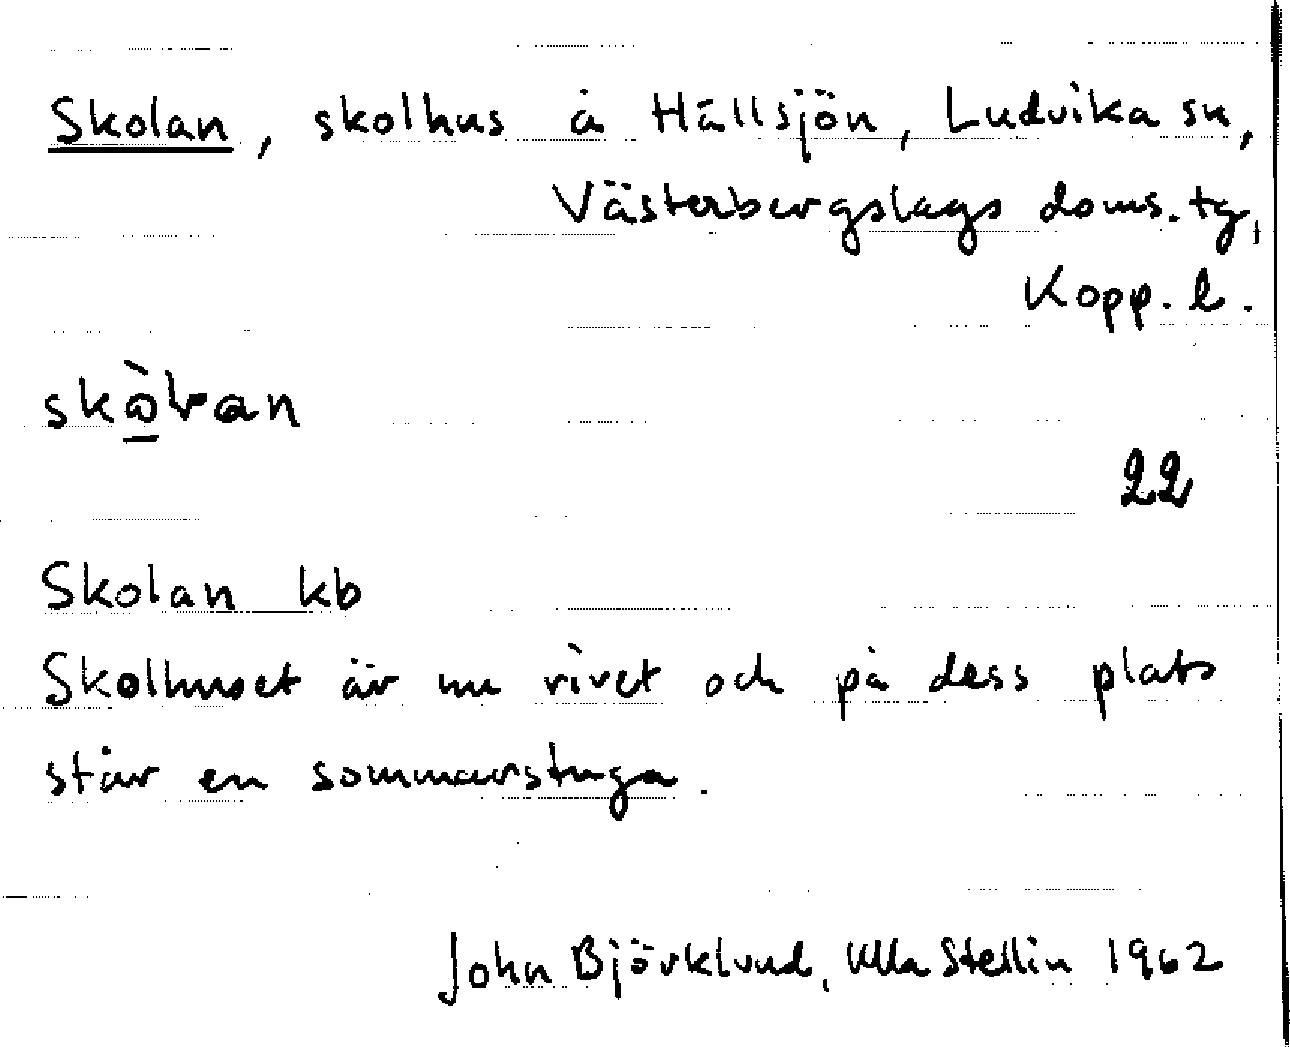 Skolan, skolhus å Hällsjön, Ludvika sn,
Västerbergslags doms. tg,
Kopp. l.
22
Skolan kb
Skolhuset är nu rivet och på dess plats
står en sommarstuga.
John Björklund, Ulla Stellin 1962